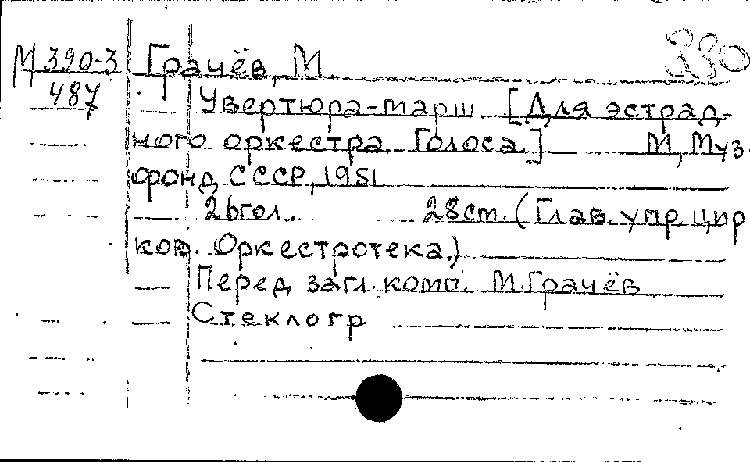 М 390-3 Грачёв, М. 330
487 Увертюра-марш [Для эстрад-
ного оркестра. Голоса.] М., Муз.
фонд СССР, 1951
26гол. 28см. (Глав. упр. цир
ков. Оркестротека.)
Перед загл. комп. М. Грачёв
Стеклогр